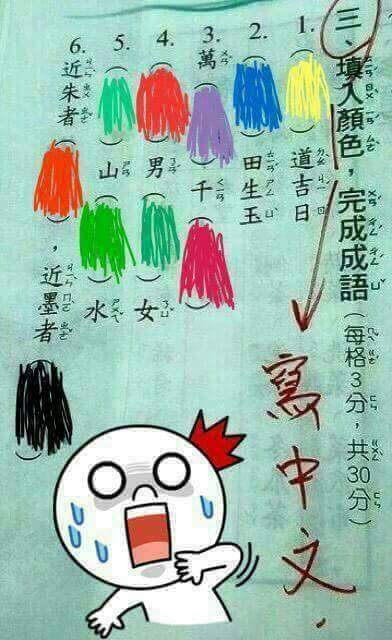 三、填入顏色，完成成語（每格3分，共30分）
寫中文.
1.（ ）道吉日
2.（ ）田生玉
3.萬（ ）千（ ）
4.（ ）男（ ）女
5.（ ）山（ ）水
6.近朱者（ ），近墨者（ ）